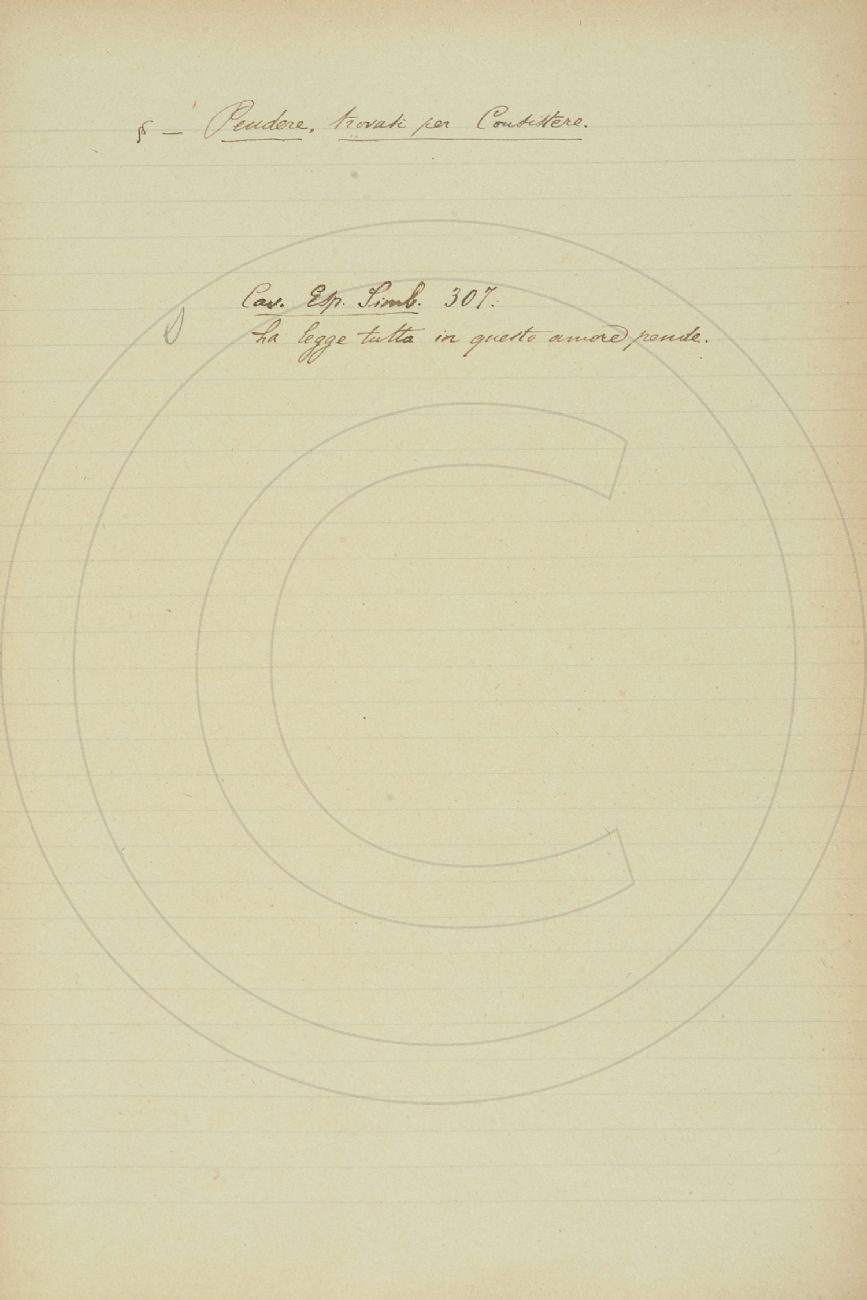 § — Pendere, trovati per Consistere.
Cav. Esp. Simb. 307.
La legge tutta in questo amore pende.